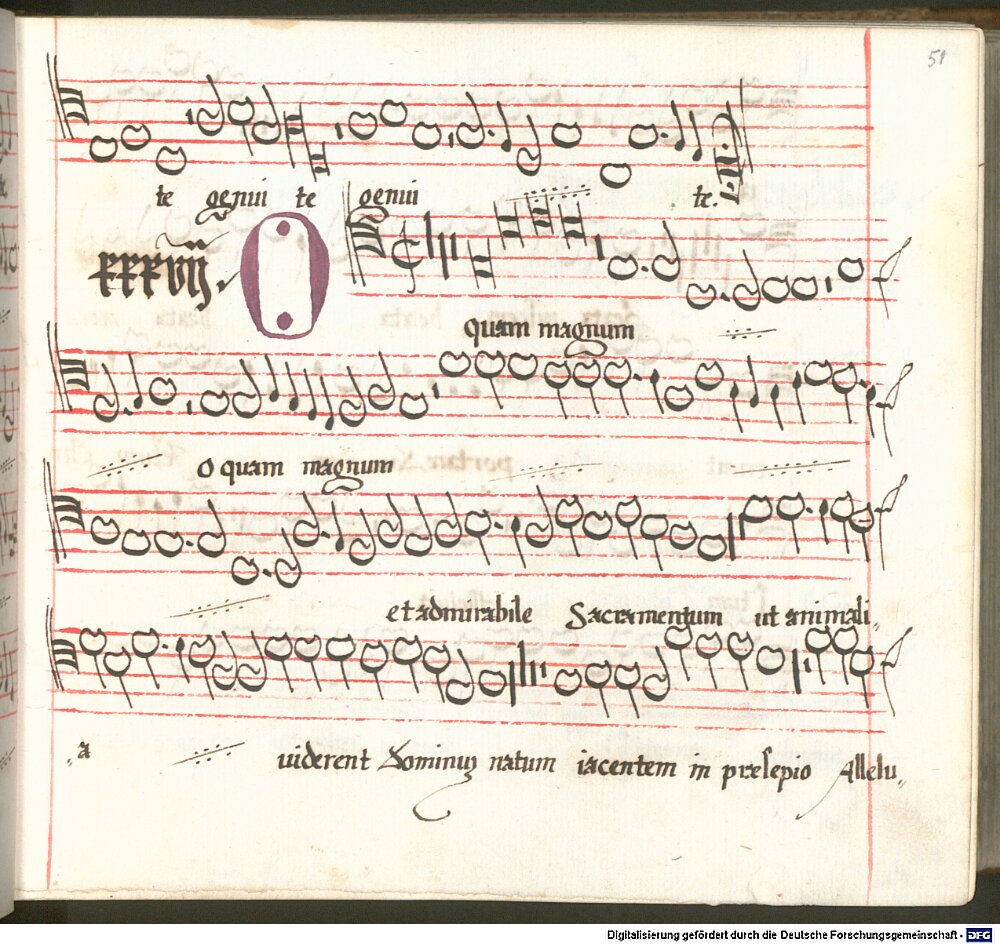 51
te genui te genui te.
xxxvij. O
quam magnum
O quam magnum
et admirabile Sacramentum ut animali„
„a uiderent Dominuʒ natum iacentem in presepio Allelu„
Digitalisierung gefördert durch die Deutsche Forschungsgemeinschaft - DFG